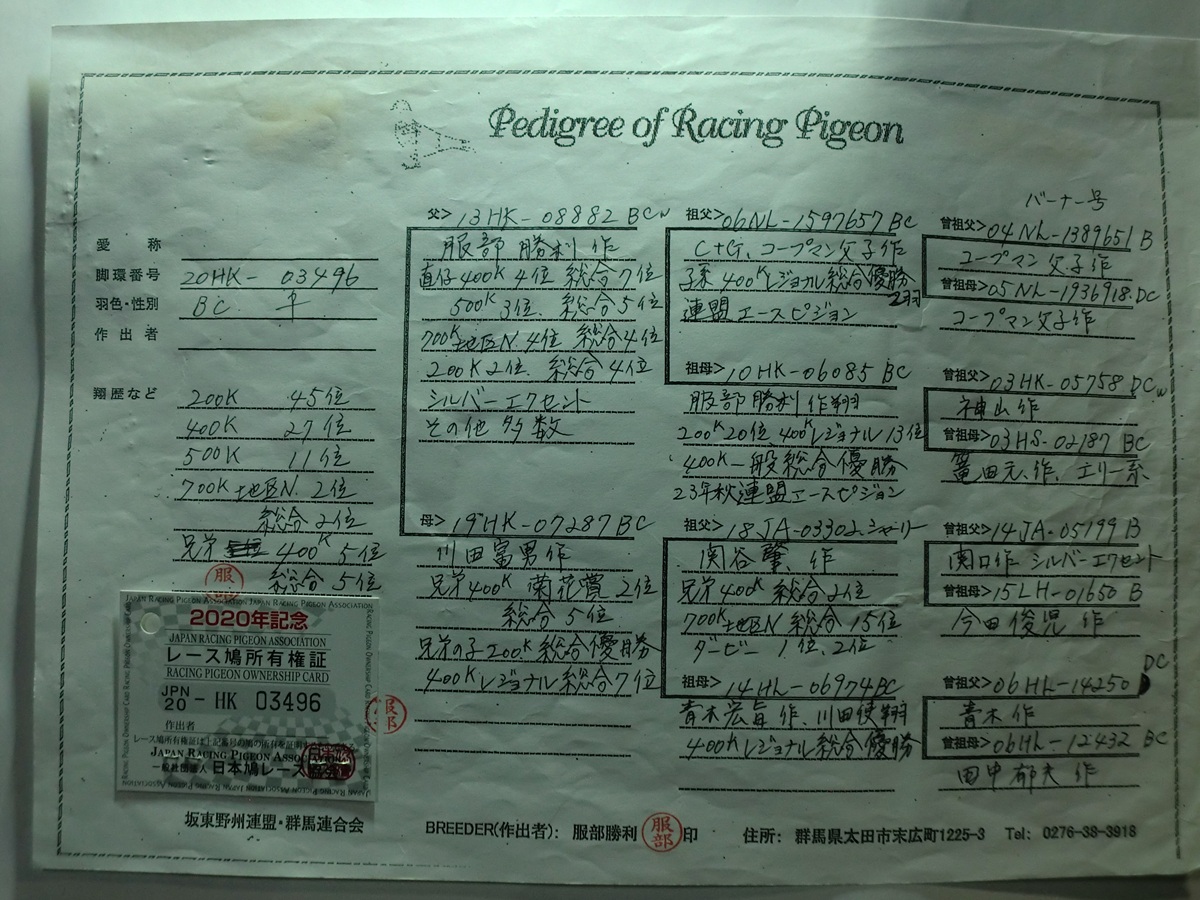 Pedigree of Racing Pigeon
愛 称
脚環番号 20HK- 03496
羽色・性別 BC ♀
作出者
翔歴など 200K 45位
400K 27位
500K 11位
700K地区N 2位
総合2位
兄弟 400K 5位
総合 5位
服部
2020年記念
JAPAN RACING PIGEON ASSOCIATION
レース鳩所有権証
RACING PIGEON OWNERSHIP CARD
JPN 20 - HK 03496
作出者
JAPAN RACING PIGEON ASSOCIATION
一般社団法人 日本鳩レース協会
坂東野州連盟・群馬連合会
父> 13HK-08882 BCW
服部 勝利 作
直仔400K 4位 総合7位
500K 3位 総合5位
700K地区N 4位 総合4位
200K 2位. 総合4位
シルバーエクセント
その他多数
母> 19HK-07287 BC
川田富男作
兄弟400K 菊花賞 2位
総合 5位
兄弟の子200K 総合優勝
400Kレジョナル総合7位
祖父> 06NL-1597657 BC
C+G. コープマン父子作
子孫 400Kレジョナル総合優勝
2羽
連盟エースピジョン
祖母> 10HK-06085 BC
服部勝利 作翔
200K20位 400Kレジョナル13位
400K一般総合優勝
23年秋連盟エースピジョン
祖父> 18JA-03302 シャーリー
関谷肇 作
兄弟400K 総合2位
700K地区N 総合15位
ダービー 1位、2位
祖母> 14HL-06974 BC
青木宏 作、川田使翔
400Kレジョナル総合優勝
バーナー号
曽祖父> 04NL-1389651 B
コープマン父子作
曽祖母> 05NL-1936918 DC
コープマン父子作
曽祖父> 03HK-05758 DCW
神山作
曽祖母> 03HS-02187 BC
篭田元.作、エリー系
曽祖父> 14JA-05199 B
関口作 シルバーエクセント
曽祖母> 15LH-01650 B
今田俊児 作
曽祖父> 06HL-14250 DC
青木作
曽祖母> 06HL-12432 BC
田中郁夫 作
BREEDER(作出者): 服部勝利 服部 印 住所: 群馬県太田市末広町1225-3 Tel: 0276-38-3918